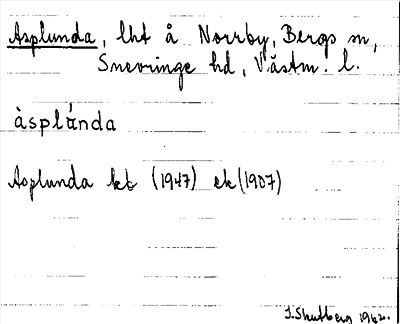 Asplunda, lht å Norrby, Bergs sn,
Snevringe hd, Västm. l.
àsplánda
Asplunda kb (1947) ek (1907)
1962.